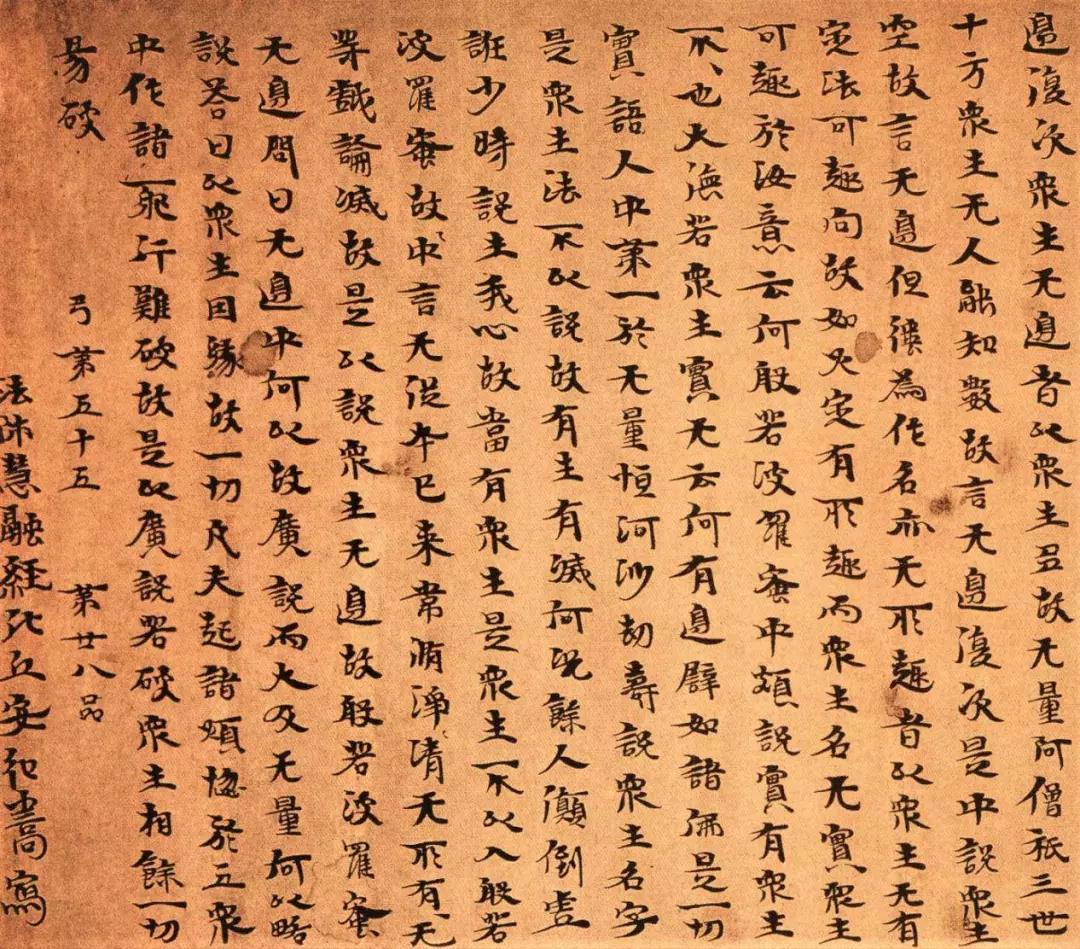 邊復次眾生无邊者以眾生多故无量阿僧祇三世
十方眾生无人能知數故言无邊復次是中說眾生
空故言无邊但強為作名亦无所趣者以眾生无有
定法可趣向故如火定有所趣而眾生名无實眾生
可趣於汝意云何般若波羅蜜中頗說實有眾生
不、也大德若眾生實无云何有邊辟如諸佛是一切
實語人中第一於无量恒河沙劫壽說眾生名字
是眾生法不以說故有生有滅何況餘人顛倒虛
誑少時說生我心故當有眾生是眾生不以入般若
波羅蜜故中言无從本已來常淨清无所有无
等戲論滅故是以說眾生无邊故般若波羅蜜
无邊問曰无邊中何以故廣說而大及无量何以略
說答曰以眾生因緣故一切凡夫起諸煩惱於五眾
中作諸邪行難破故是以廣說若破眾生相餘一切
易破
弓第五十五 第廿八品
法師慧融經比丘安弘嵩寫